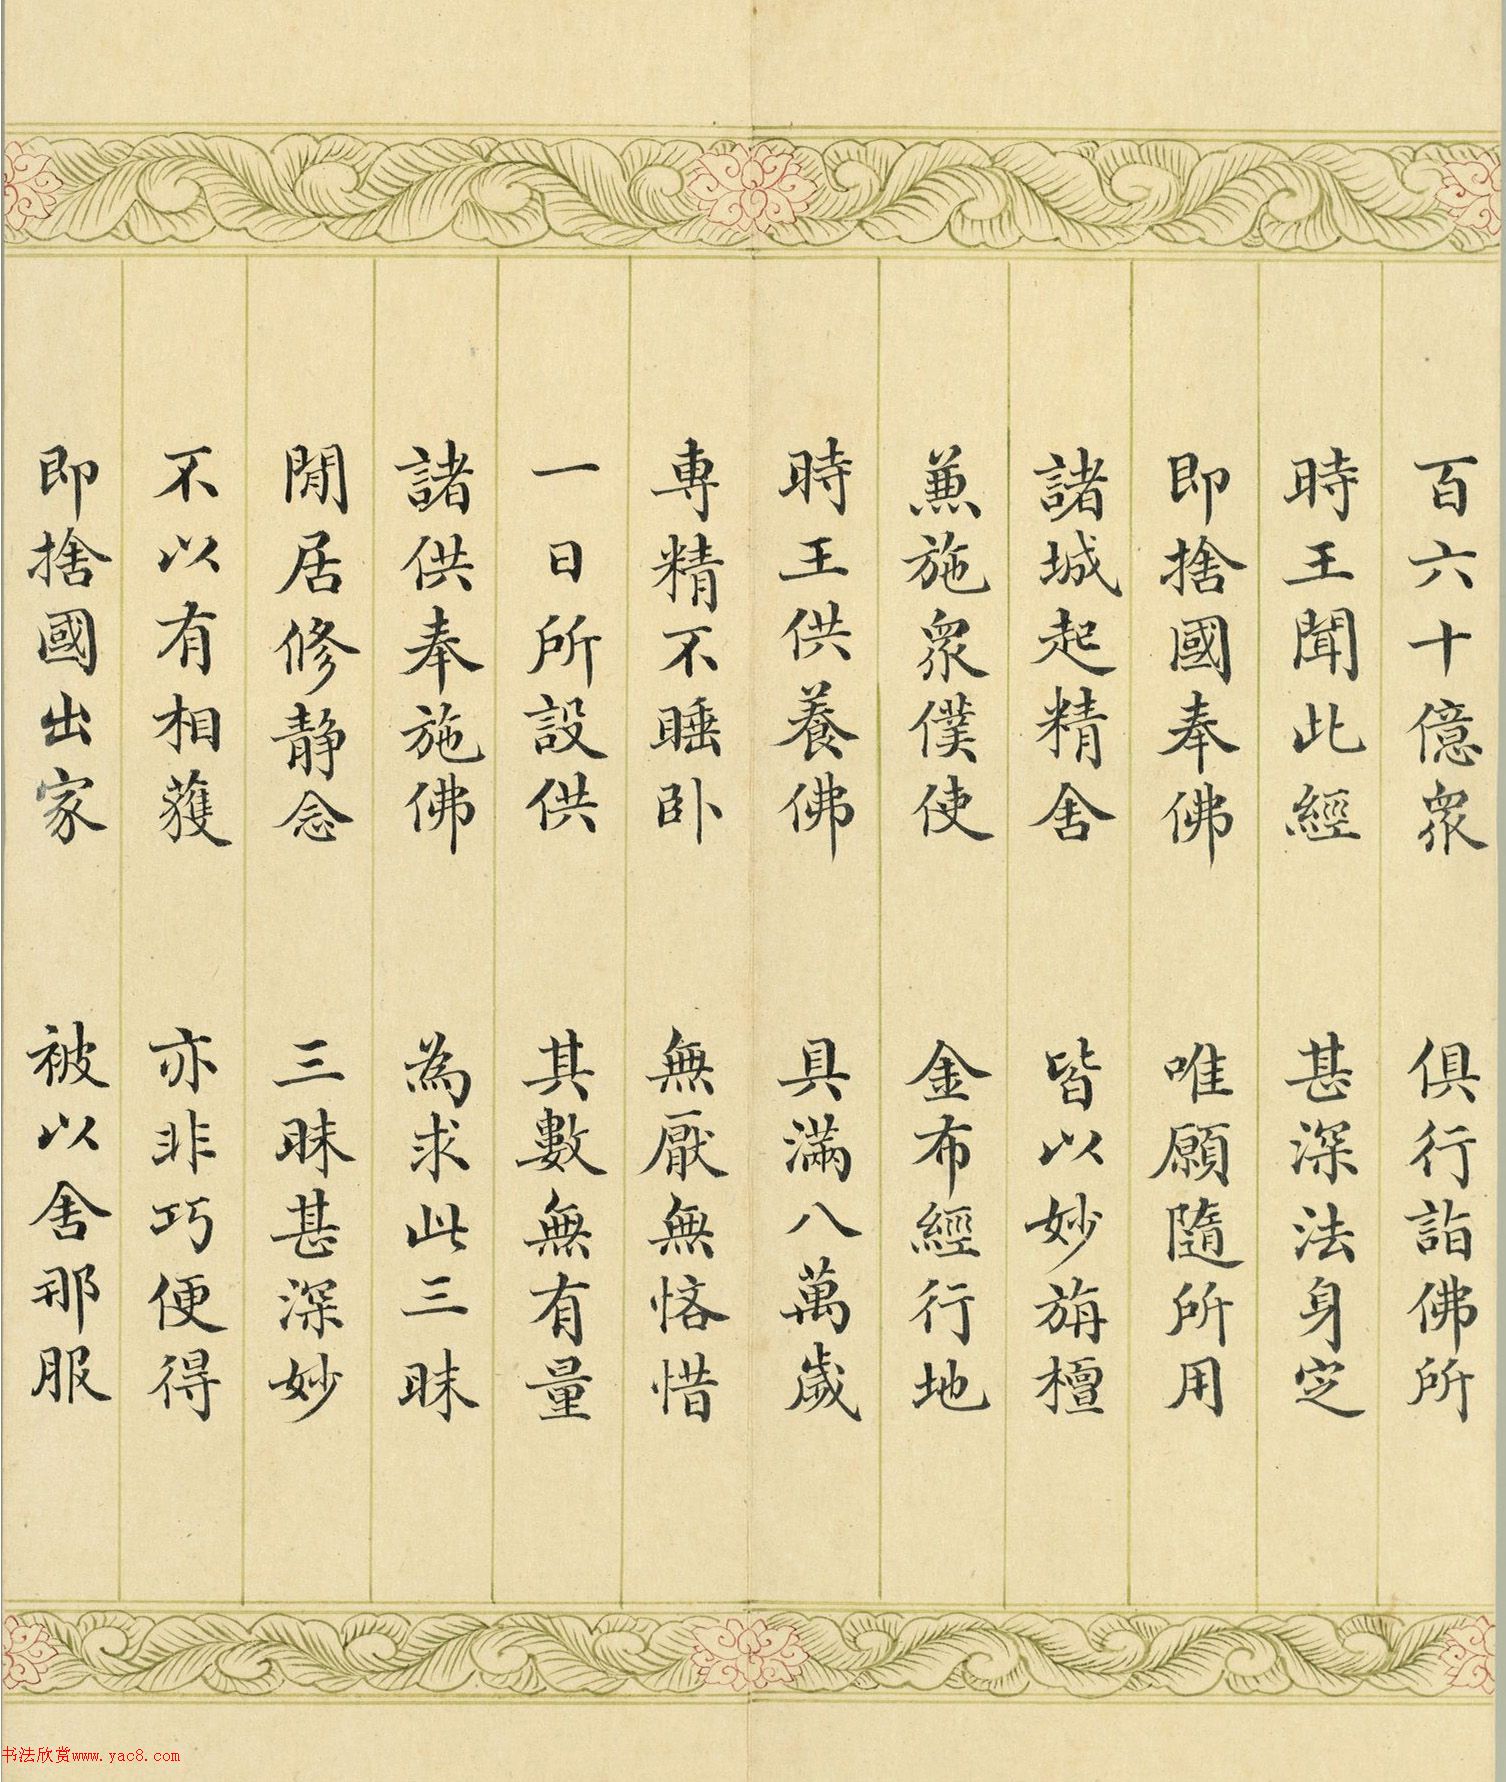 百六十億眾　俱行詣佛所
時王聞此經　甚深法身定
即捨國奉佛　唯願隨所用
諸城起精舍　皆以妙旃檀
兼施眾僕使　金布經行地
時王供養佛　具滿八萬歲
專精不睡臥　無厭無悋惜
一日所設供　其數無有量
諸供奉施佛　為求此三昧
閒居修靜念　三昧甚深妙
不以有相獲　亦非巧便得
即捨國出家　被以舍那服
书法欣赏www.yac8.com